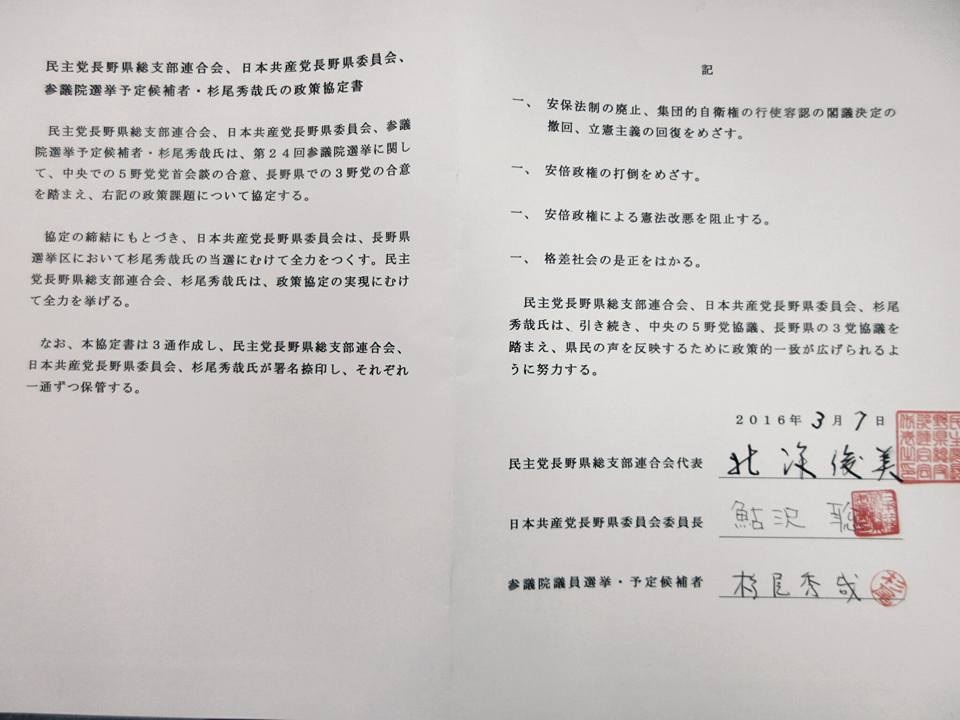 民主党長野県総支部連合会、日本共産党長野県委員会、
参議院選挙予定候補者・杉尾秀哉氏の政策協定書
民主党長野県総支部連合会、日本共産党長野県委員会、参議
院選挙予定候補者・杉尾秀哉氏は、第24回参議院選挙に関し
て、中央での5野党党首会談の合意、長野県での3野党の合意
を踏まえ、右記の政策課題について協定する。
協定の締結にもとづき、日本共産党長野県委員会は、長野県
選挙区において杉尾秀哉氏の当選にむけて全力をつくす。民主
党長野県総支部連合会、杉尾秀哉氏は、政策協定の実現にむけ
て全力を挙げる。
なお、本協定書は3通作成し、民主党長野県総支部連合会、
日本共産党長野県委員会、杉尾秀哉氏が署名捺印し、それぞれ
一通ずつ保管する。
記
一、安保法制の廃止、集団的自衛権の行使容認の閣議決定の
撤回、立憲主義の回復をめざす。
一、安倍政権の打倒をめざす。
一、安倍政権による憲法改悪を阻止する。
一、格差社会の是正をはかる。
民主党長野県総支部連合会、日本共産党長野県委員会、杉尾
秀哉氏は、引き続き、中央の5野党協議、長野県の3党協議を
踏まえ、県民の声を反映するために政策的一致が広げられるよ
うに努力する。
2016年3月7日
民主党長野県総支部連合会代表 北澤俊美
日本共産党長野県委員会委員長 鮎沢聡
参議院議員選挙・予定候補者 杉尾秀哉